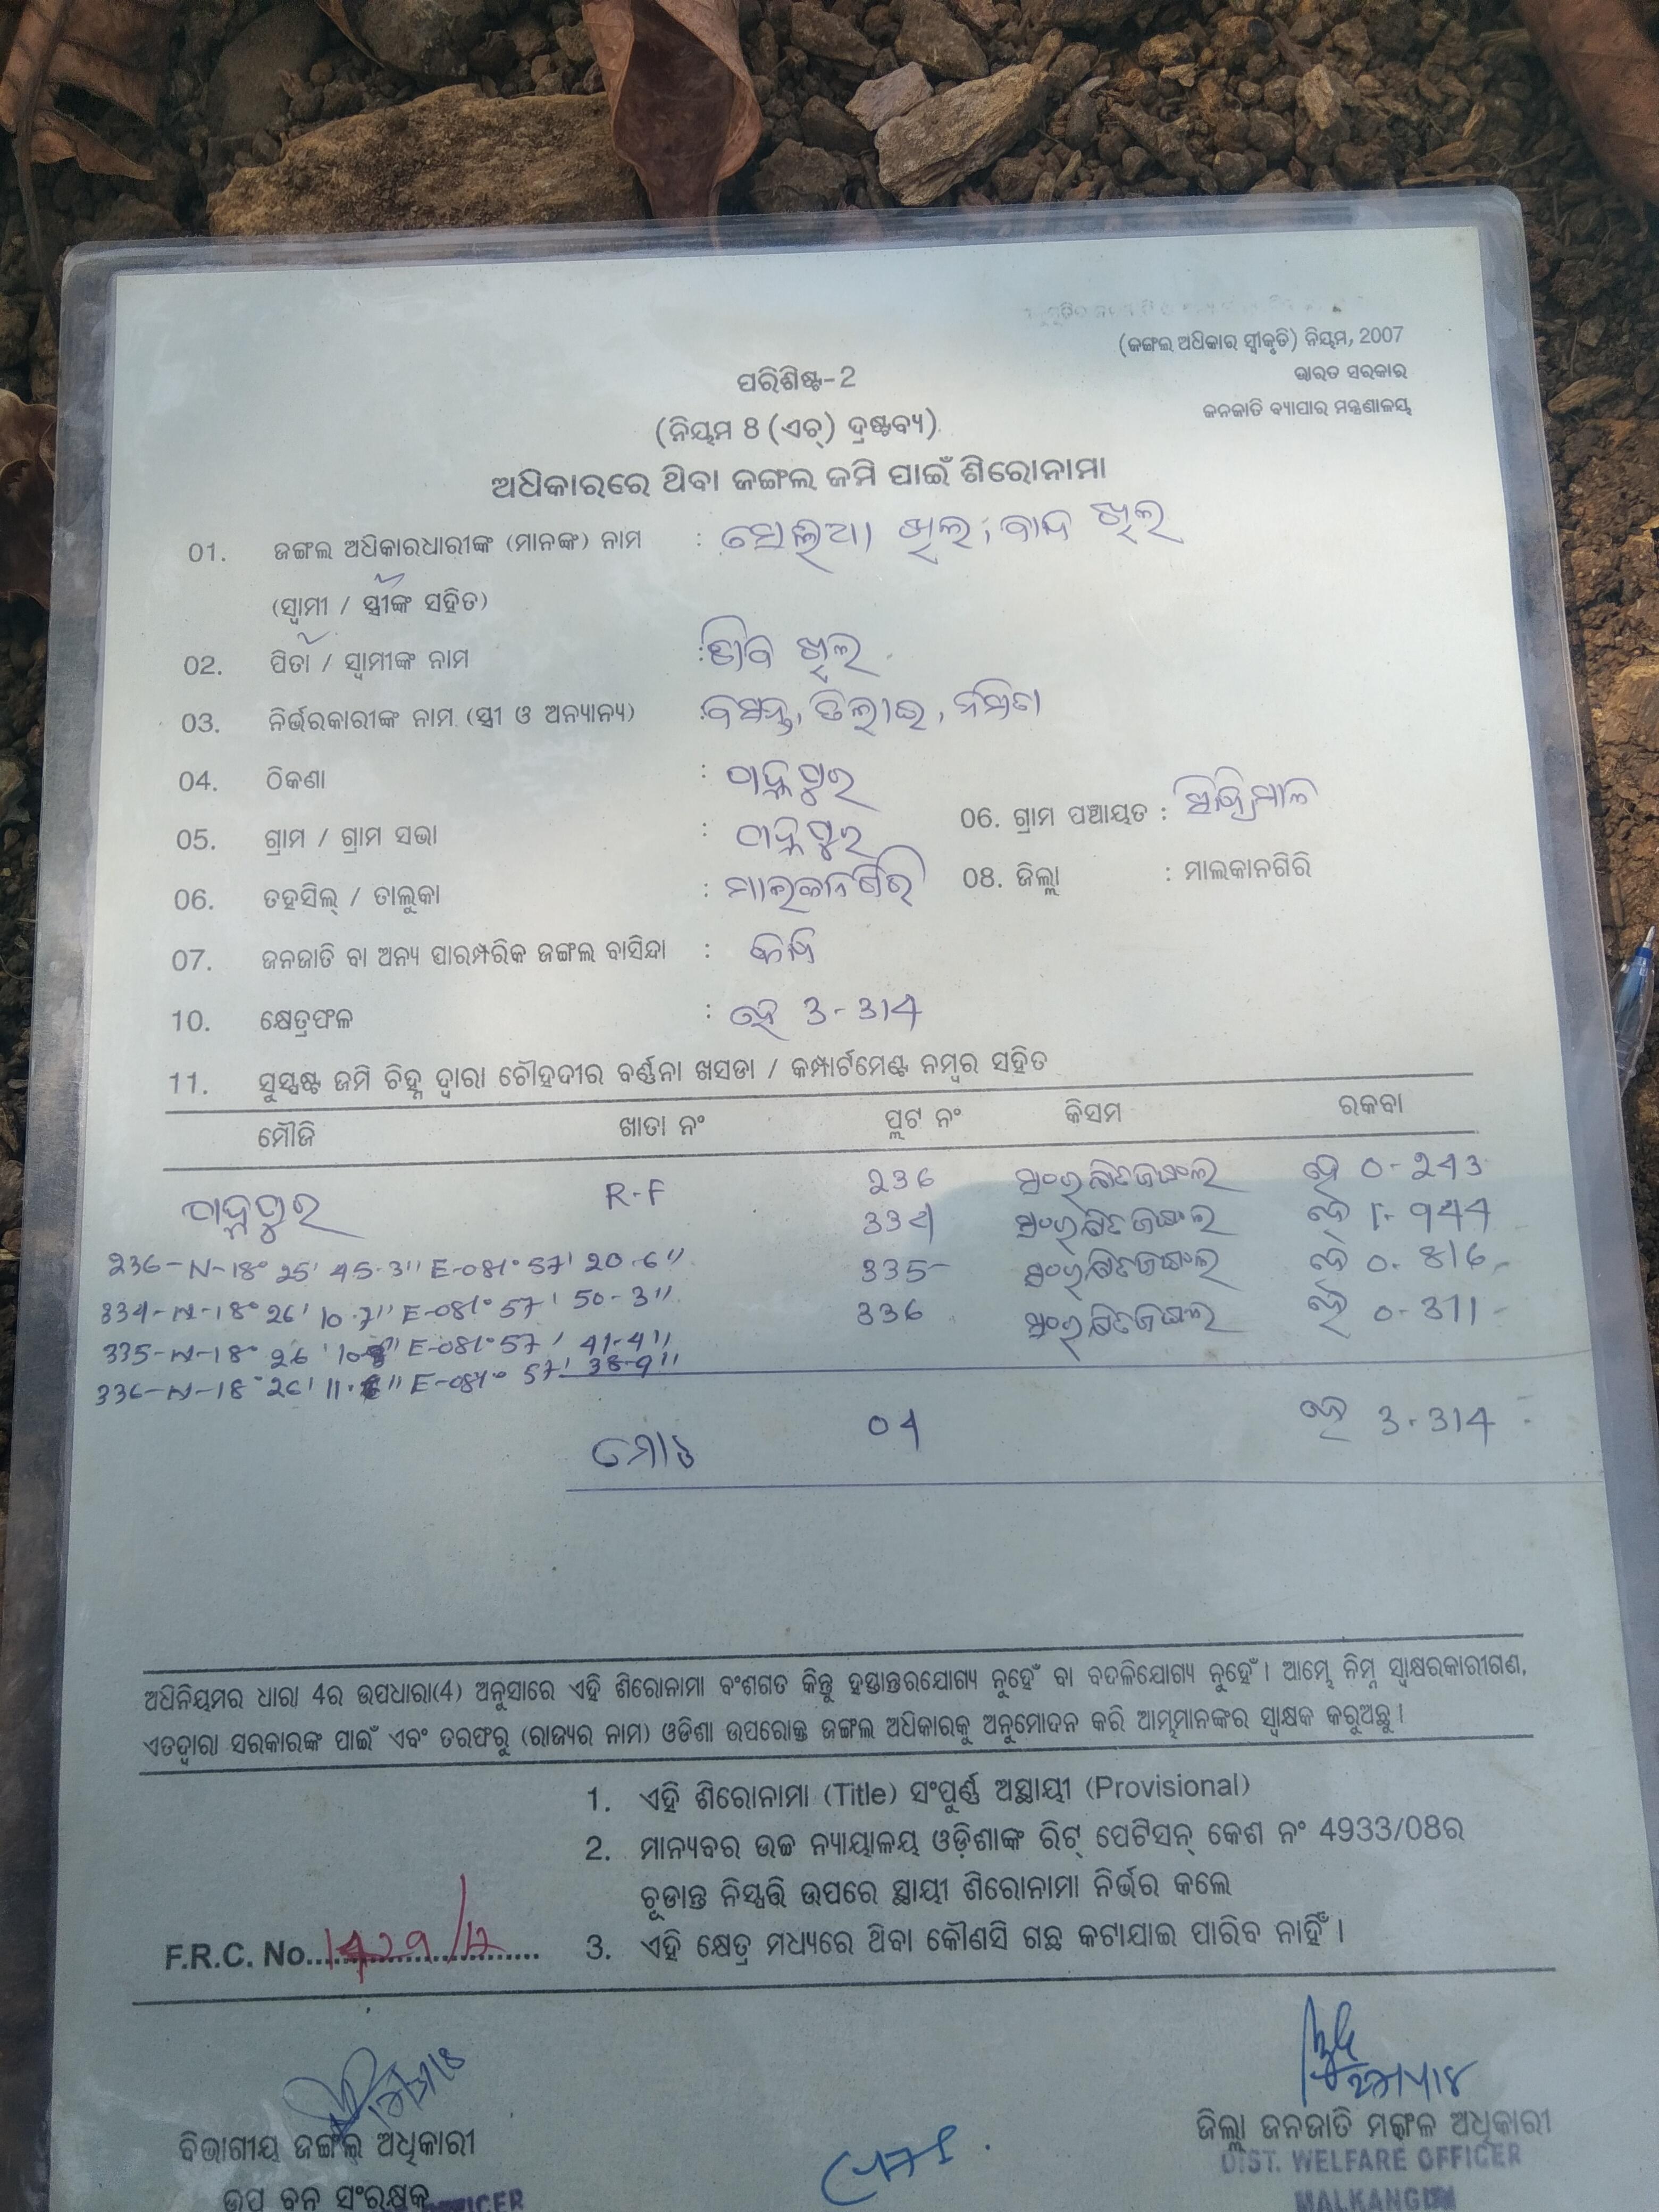 (ଜଙ୍ଗଲ ଅଧିକାର ସ୍ୱୀକୃତି) ନିୟମ, 2007
ଭାରତ ସରକାର
ଜନଜାତି ବ୍ୟାପାର ମନ୍ତ୍ରଣାଳୟ
ପରିଶିଷ୍ଟ-2
(ନିୟମ 8 (ଏଚ୍) ଦ୍ରଷ୍ଟବ୍ୟ)
ଅଧିକାରରେ ଥିବା ଜଙ୍ଗଲ ଜମି ପାଇଁ ଶିରୋନାମା
01. ଜଙ୍ଗଲ ଅଧିକାରଧାରୀଙ୍କ (ମାନଙ୍କ) ନାମ :
(ସ୍ୱାମୀ / ସ୍ତ୍ରୀଙ୍କ ସହିତ)
02. ପିତା / ସ୍ୱାମୀଙ୍କ ନାମ :
03. ନିର୍ଭରକାରୀଙ୍କ ନାମ (ସ୍ତ୍ରୀ ଓ ଅନ୍ୟାନ୍ୟ) :
04. ଠିକଣା :
05. ଗ୍ରାମ / ଗ୍ରାମ ସଭା : 06. ଗ୍ରାମ ପଞ୍ଚାୟତ :
06. ତହସିଲ୍ / ତାଲୁକା : ମାଲକାନଗିରି 08. ଜିଲ୍ଲା : ମାଲକାନଗିରି
07. ଜନଜାତି ବା ଅନ୍ୟ ପାରମ୍ପରିକ ଜଙ୍ଗଲ ବାସିନ୍ଦା :
10. କ୍ଷେତ୍ରଫଳ : ହେ 3-314
11. ସୁସ୍ପଷ୍ଟ ଜମି ଚିହ୍ନ ଦ୍ୱାରା ଚୌହଦୀର ବର୍ଣ୍ଣନା ଖସଡା / କମ୍ପାର୍ଟମେଣ୍ଟ ନମ୍ବର ସହିତ
ମୌଜି ଖାତା ନଂ ପ୍ଲଟ ନଂ କିସମ ରକବା
R-F 236 ସଂରକ୍ଷିତ ଜଙ୍ଗଲ ହେ 0-243
334 ସଂରକ୍ଷିତ ଜଙ୍ଗଲ ହେ 1-944
236-N-18° 25' 45.3" E-081° 57' 20.6" 335 ସଂରକ୍ଷିତ ଜଙ୍ଗଲ ହେ 0-816
334-N-18° 26' 10.7" E-081° 57' 50-3" 336 ସଂରକ୍ଷିତ ଜଙ୍ଗଲ ହେ 0-311
335-N-18° 26' E-081° 57' 41-4"
336-N-18° 26' E-081° 57' 38-9"
ମୋଟ 04 ହେ 3-314
ଅଧିନିୟମର ଧାରା 4ର ଉପଧାରା(4) ଅନୁସାରେ ଏହି ଶିରୋନାମା ବଂଶଗତ କିନ୍ତୁ ହସ୍ତାନ୍ତରଯୋଗ୍ୟ ନୁହେଁ ବା ବଦଳିଯୋଗ୍ୟ ନୁହେଁ । ଆମ୍ଭେ ନିମ୍ନ ସ୍ୱାକ୍ଷରକାରୀଗଣ,
ଏତଦ୍ୱାରା ସରକାରଙ୍କ ପାଇଁ ଏବଂ ତରଫରୁ (ରାଜ୍ୟର ନାମ) ଓଡିଶା ଉପରୋକ୍ତ ଜଙ୍ଗଲ ଅଧିକାରକୁ ଅନୁମୋଦନ କରି ଆମ୍ଭମାନଙ୍କର ସ୍ୱାକ୍ଷକ କରୁଅଛୁ ।
1. ଏହି ଶିରୋନାମା (Title) ସଂପୁର୍ଣ୍ଣ ଅସ୍ଥାୟୀ (Provisional)
2. ମାନ୍ୟବର ଉଚ୍ଚ ନ୍ୟାୟାଳୟ ଓଡ଼ିଶାଙ୍କ ରିଟ୍ ପେଟିସନ୍ କେଶ ନଂ 4933/08ର
ଚୂଡାନ୍ତ ନିସ୍ପତ୍ତି ଉପରେ ସ୍ଥାୟୀ ଶିରୋନାମା ନିର୍ଭର କଲେ
F.R.C. No. 3. ଏହି କ୍ଷେତ୍ର ମଧ୍ୟରେ ଥିବା କୌଣସି ଗଛ କଟାଯାଇ ପାରିବ ନାହିଁ ।
ବିଭାଗୀୟ ଜଙ୍ଗଲ ଅଧିକାରୀ ଜିଲ୍ଲା ଜନଜାତି ମଙ୍ଗଳ ଅଧିକାରୀ
DIST. WELFARE OFFICER
ଉପ ବନ ସଂରକ୍ଷକ